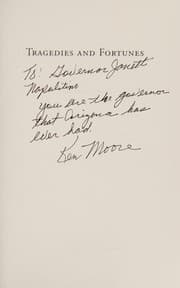 TRAGEDIES AND FORTUNES
To: Governor Janett
Napolitino
you are the governor
that Arizona has
ever had.
Ken Moore